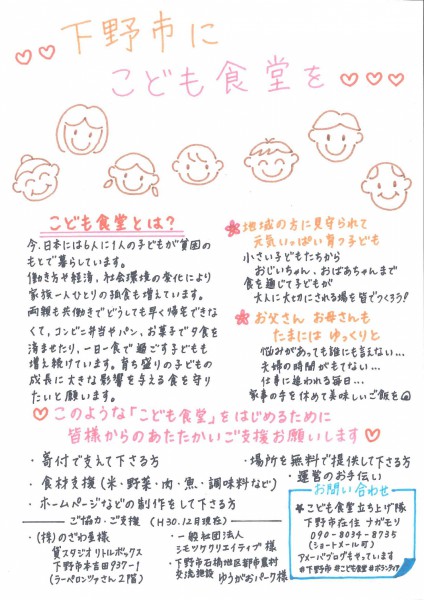 下野市に
こども食堂を
こども食堂とは?
今、日本には6人に1人の子どもが貧困の
もとで暮らしています。
働き方や経済、社会環境の変化により
家族一人ひとりの孤食も増えています。
両親も共働きでどうしても早く帰宅できな
くて、コンビニ弁当やパン、お菓子で夕食を
済ませたり、一日一食で過ごす子どもも
増え続けています。育ち盛りの子どもの
成長に大きな影響を与える食を守り
たいと願います。
地域の方に見守られて
元気いっぱい育つ子ども
小さい子どもたちから
おじいちゃん、おばあちゃんまで
食を通じて子どもが
大人に大切にされる場を皆でつくろう!
お父さん お母さんも
たまには ゆっくりと
悩みがあっても誰にも言えない…
夫婦の時間がもてない…
仕事に追われる毎日…
家事の手を休めて美味しいご飯を
このような「こども食堂」をはじめるために
皆様からのあたたかいご支援お願いします
・寄付で支えて下さる方
・食材支援(米・野菜・肉・魚・調味料など)
・ホームページなどの制作をして下さる方
・場所を無料で提供して下さる方
・運営のお手伝い
ご協力・ご支援 (H30.12月現在)
・(株)のざわ屋様
貸スタジオリトルボックス
下野市本吉田937-1
(ラーペロンツァさん2階)
・一般社団法人
シモツケクリエイティブ様
・下野市石橋地区都市農村
交流施設 ゆうがおパーク様
お問い合わせ
こども食堂立ち上げ隊
下野市在住 ナガモリ
090-8034-8735
(ショートメール可)
アメーバブログもやっています
#下野市 #こども食堂 #ボランティア